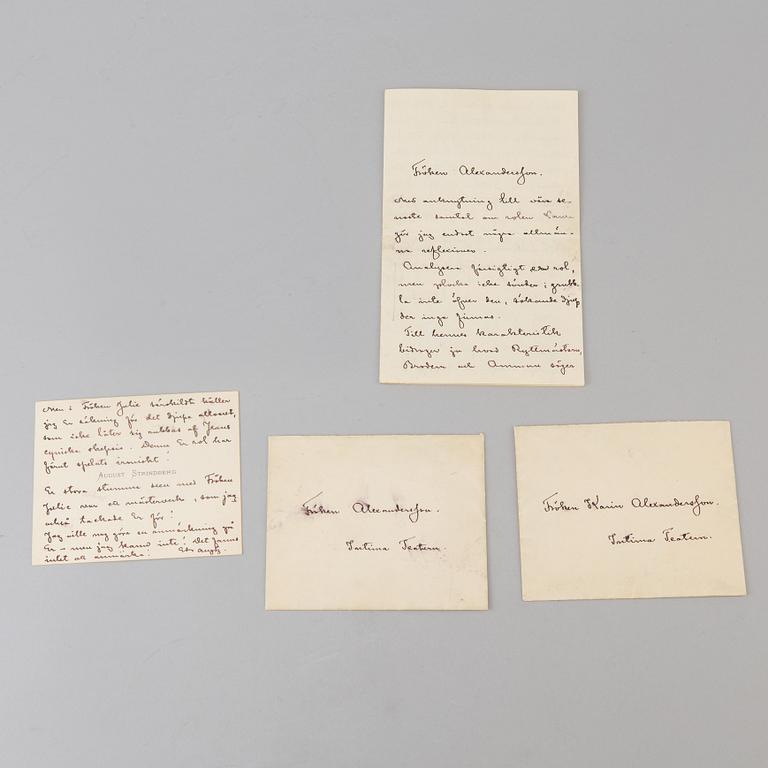 Fröken Alexanderson.
Med anknytning till våra se-
naste samtal om rolen Laura
gör jag endast några allmän-
na reflexioner.
Analysera försigtigt en rol,
men plocka icke sönder; grubb-
la inte öfver den, sökande djup
der inga finnas.
Till hennes karakteristik
bidrager ju hvad Ryttmästarn,
Brodern och Amman säger
Men i Fröken Julie särskildt håller
jag Er räkning för det djupa allvaret,
som icke låter sig rubbas af Jeans
cyniska skepsis. Denna Er rol har
förut spelats ironiskt!
AUGUST STRINDBERG
Er stora stumma scen med Fröken
Julie var ett mästerverk, som jag
också tackade Er för!
Jag ville nog göra en anmärkning på
Er – men jag kann inte! Det finns
intet att anmärka!
Fröken Alexanderson.
Intima Teatern.
Fröken Karin Alexanderson.
Intima Teatern.